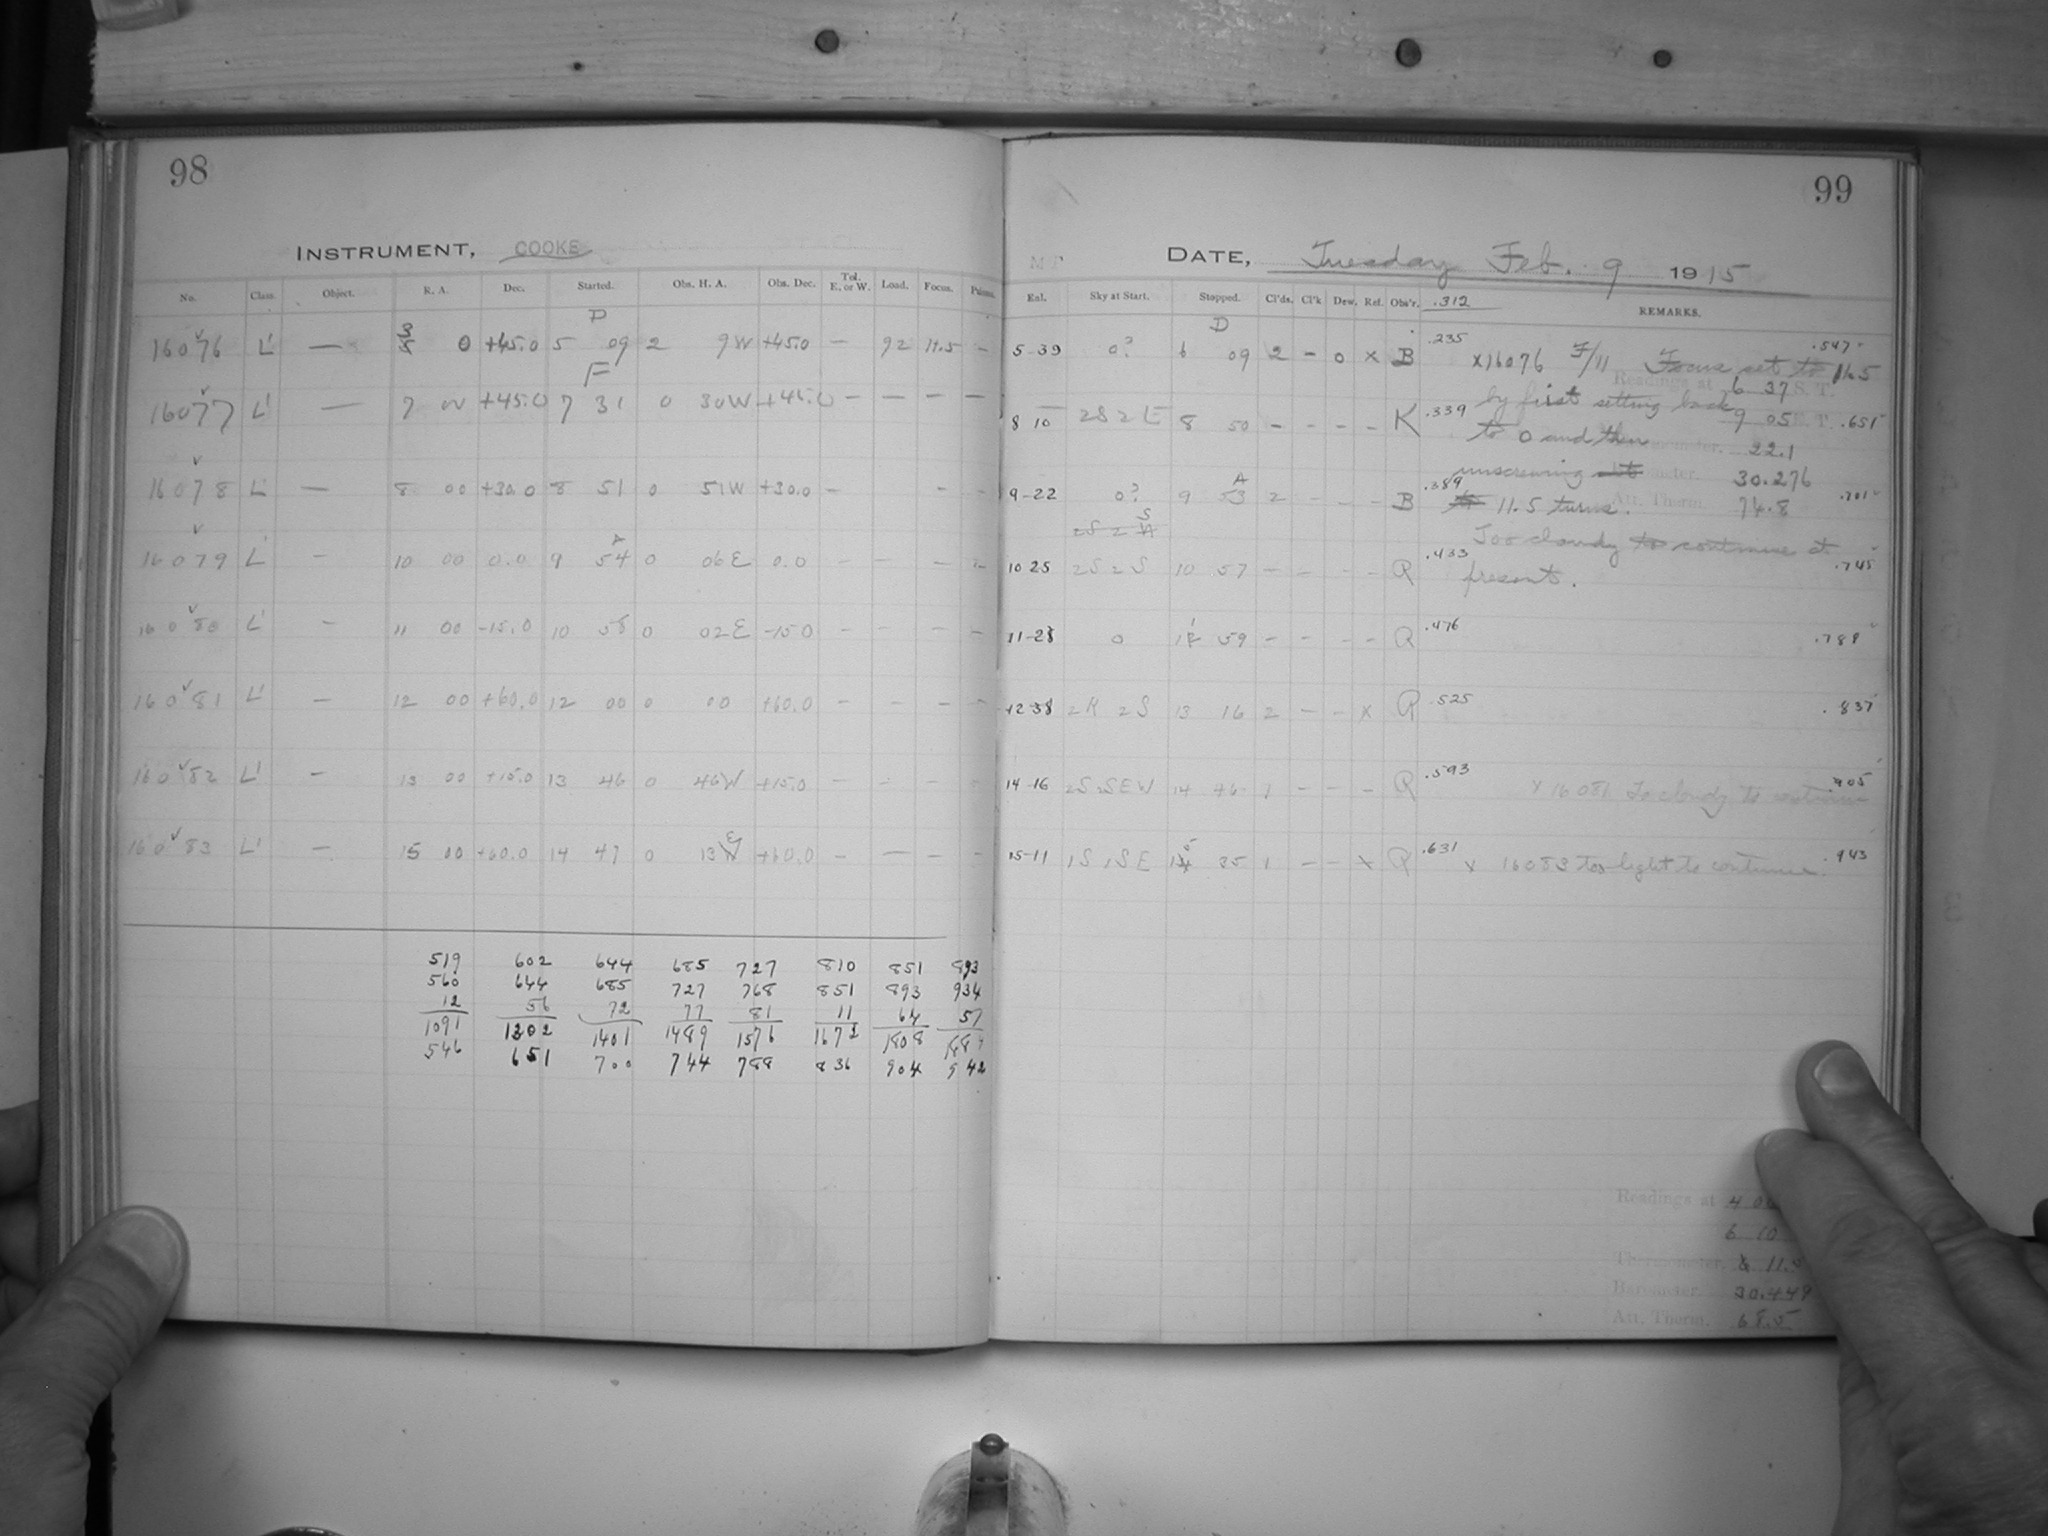 98
INSTRUMENT, COOKE
No. Class. Object. R. A. Dec. Started. Obs. H. A. Obs. Dec. Tel. E. or W. Load. Focus.
D
16076 L' — 0 +45.0 5 09 2 9W +45.0 — 92 11.5 —
F
16077 L' — 7 00 +45.0 7 31 0 30W +45.0 — — — —
16078 L' — 8 00 +30.0 8 51 0 51W +30.0 — — —
A
16079 L' — 10 00 0.0 9 54 0 06E 0.0 — — — —
16080 L' — 11 00 -15.0 10 58 0 02E -15.0 — — — —
16081 L' — 12 00 +60.0 12 00 0 00 +60.0 — — — —
16082 L' — 13 00 +15.0 13 46 0 46W +15.0 — — — —
16083 L' — 15 00 +60.0 14 47 0 13 E +60.0 — — — —
519 602 644 685 727 810 851 893
560 644 685 727 768 851 893 934
12 56 72 77 81 11 64 57
1091 1302 1401 1489 1576 1672 1808
546 651 700 744 788 836 904 942
99
DATE, Tuesday Feb. 9 1915
Enl. Sky at Start. Stopped. Cl'ds. Cl'k Dew. Ref. Obs'r. .312 REMARKS.
D
5-39 0? 6 09 2 — 0 x B .235 x16076 F/11 Focus set to 11.5 .547
Readings at 6 37 S. T.
8 10 2S 2E 8 50 — — — — K .339 by first setting back 9 05 S. T. .651
to 0 and then 22.1
unscrewing 30.276
A
9-22 0? 9 53 2 — — — B .389 11.5 turns. Att. Therm. 74.8 .701
2S 2
Too cloudy to continue at
10 25 2S 2S 10 57 — — — — R .433 present. .745
11-28 0 11 59 — — — — R .476 .789
12-38 2R 2S 13 16 2 — — x R .525 .837
14-16 2S 2SEW 14 46 1 — — — R .593 x 16081 To cloudy to continue .905
15-11 1S 1SE 15 35 1 — — x R .631 x 16083 too light to continue. .943
Readings at 4 00
6 10
Thermometer. 11.
Barometer. 30.449
Att. Therm. 68.5